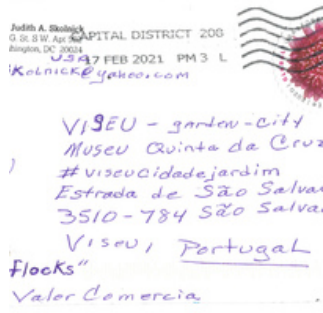 Judith A. Skolnick
G. St. S.W. Apt
hington, DC 20024
USA
CAPITAL DISTRICT 208
17 FEB 2021 PM 3 L
Kolnick@yahoo.com
VISEU - garden-city
Museu Quinta da Cruz
#viseucidadejardim
Estrada de São Salva
3510-784 São Salva
Viseu, Portugal
flocks"
Valor Comercia